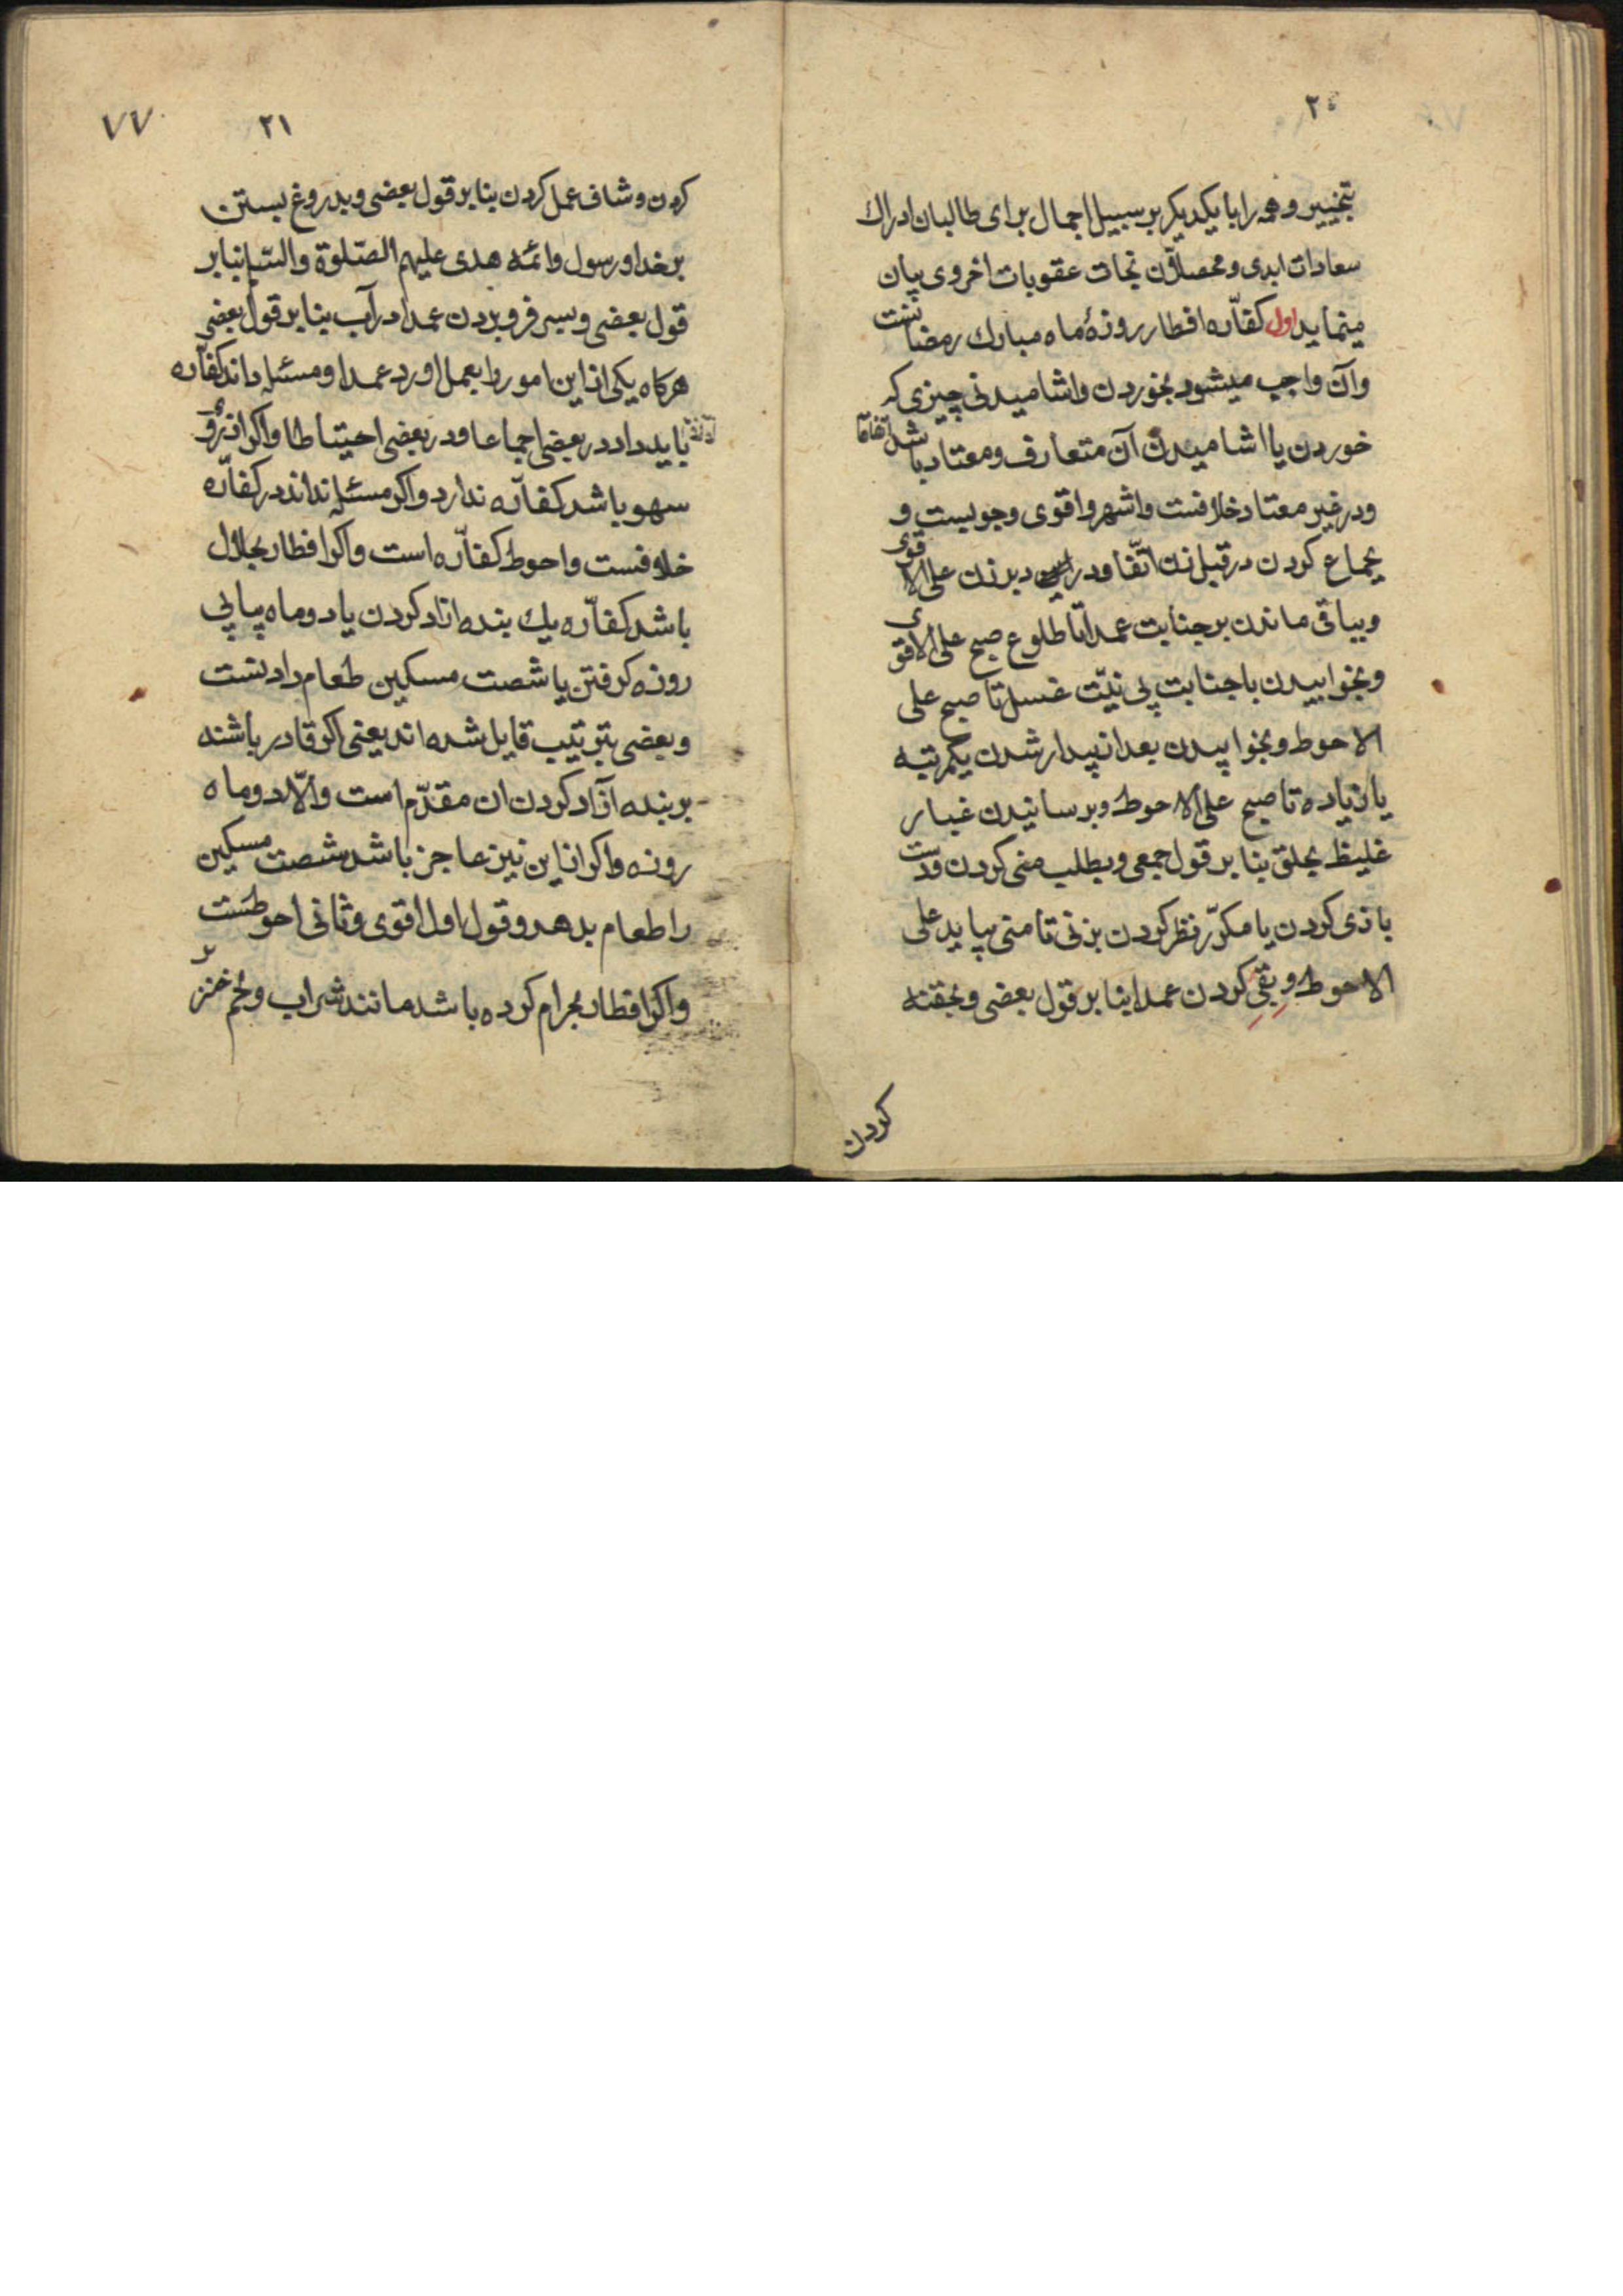 ۲۰
بتخییر و همه را با یکدیگر بر سبیل اجمال برای طالبان ادراك
سعادات ابدی و محصلان نجات عقوبات اخروی بیان
مینماید اول کفاره افطار روزهٔ ماه مبارك رمضانست
و آن واجب میشود بخوردن و اشامیدنی چیزی که
خوردن یا اشامیدن آن متعارف و معتاد باشد اتفاقا
و در غیر معتاد خلافست و اشهر و اقوی وجوبست و
بجماع کردن در قبل زن اتّفاقا و در دبر زن علی الاقوی
و بباقی ماندن بر جنابت عمداً تا طلوع صبح علی الاقوی
و بخوابیدن با جنابت بی نیّت غسل تا صبح علی
الاحوط و بخوابیدن بعد از بیدار شدن یکمرتبه
یا زیاده تا صبح علی الاحوط و برسانیدن غبار
غلیظ بحلق بنا بر قول جمعی و بطلب منی کردن و دست
بازی کردن یا مکرّر نظر کردن بزنی تا منی بیاید علی
الاحوط و بقی کردن عمدا بنا بر قول بعضی و بحقنه
کردن
۷۷
۲۱
کردن و شاف عمل کردن بنا بر قول بعضی و بدروغ بستن
بر خدا و رسول و ائمه هدی علیهم الصّلوة والسّلم بنا بر
قول بعضی و بسر فرو بردن عمدا در آب بنا بر قول بعضی
هرکاه یکی از این امور را بعمل اورد عمدا و مسئله داند کفّاره
باید داد در بعضی اجماعا و در بعضی احتیاطا و اکر از روی
سهو باشد کفاّره ندارد و اکر مسئله نداند در کفّاره
خلافست و احوط کفاّره است و اکر افطار بحلال
باشد کفاّره یك بنده ازاد کردن یا دو ماه پیاپی
روزه کرفتن یا شصت مسکین طعام دادنست
و بعضی بترتیب قایل شده اند یعنی اکر قادر باشند
بر بنده آزاد کردن ان مقدّم است و الّا دو ماه
روزه و اکر از این نیز عاجز باشد شصت مسکین
را طعام بدهد و قول اول اقوی و ثانی احوطست
و اکر افطار بحرام کرده باشد مانند شراب و لحم خنزیر